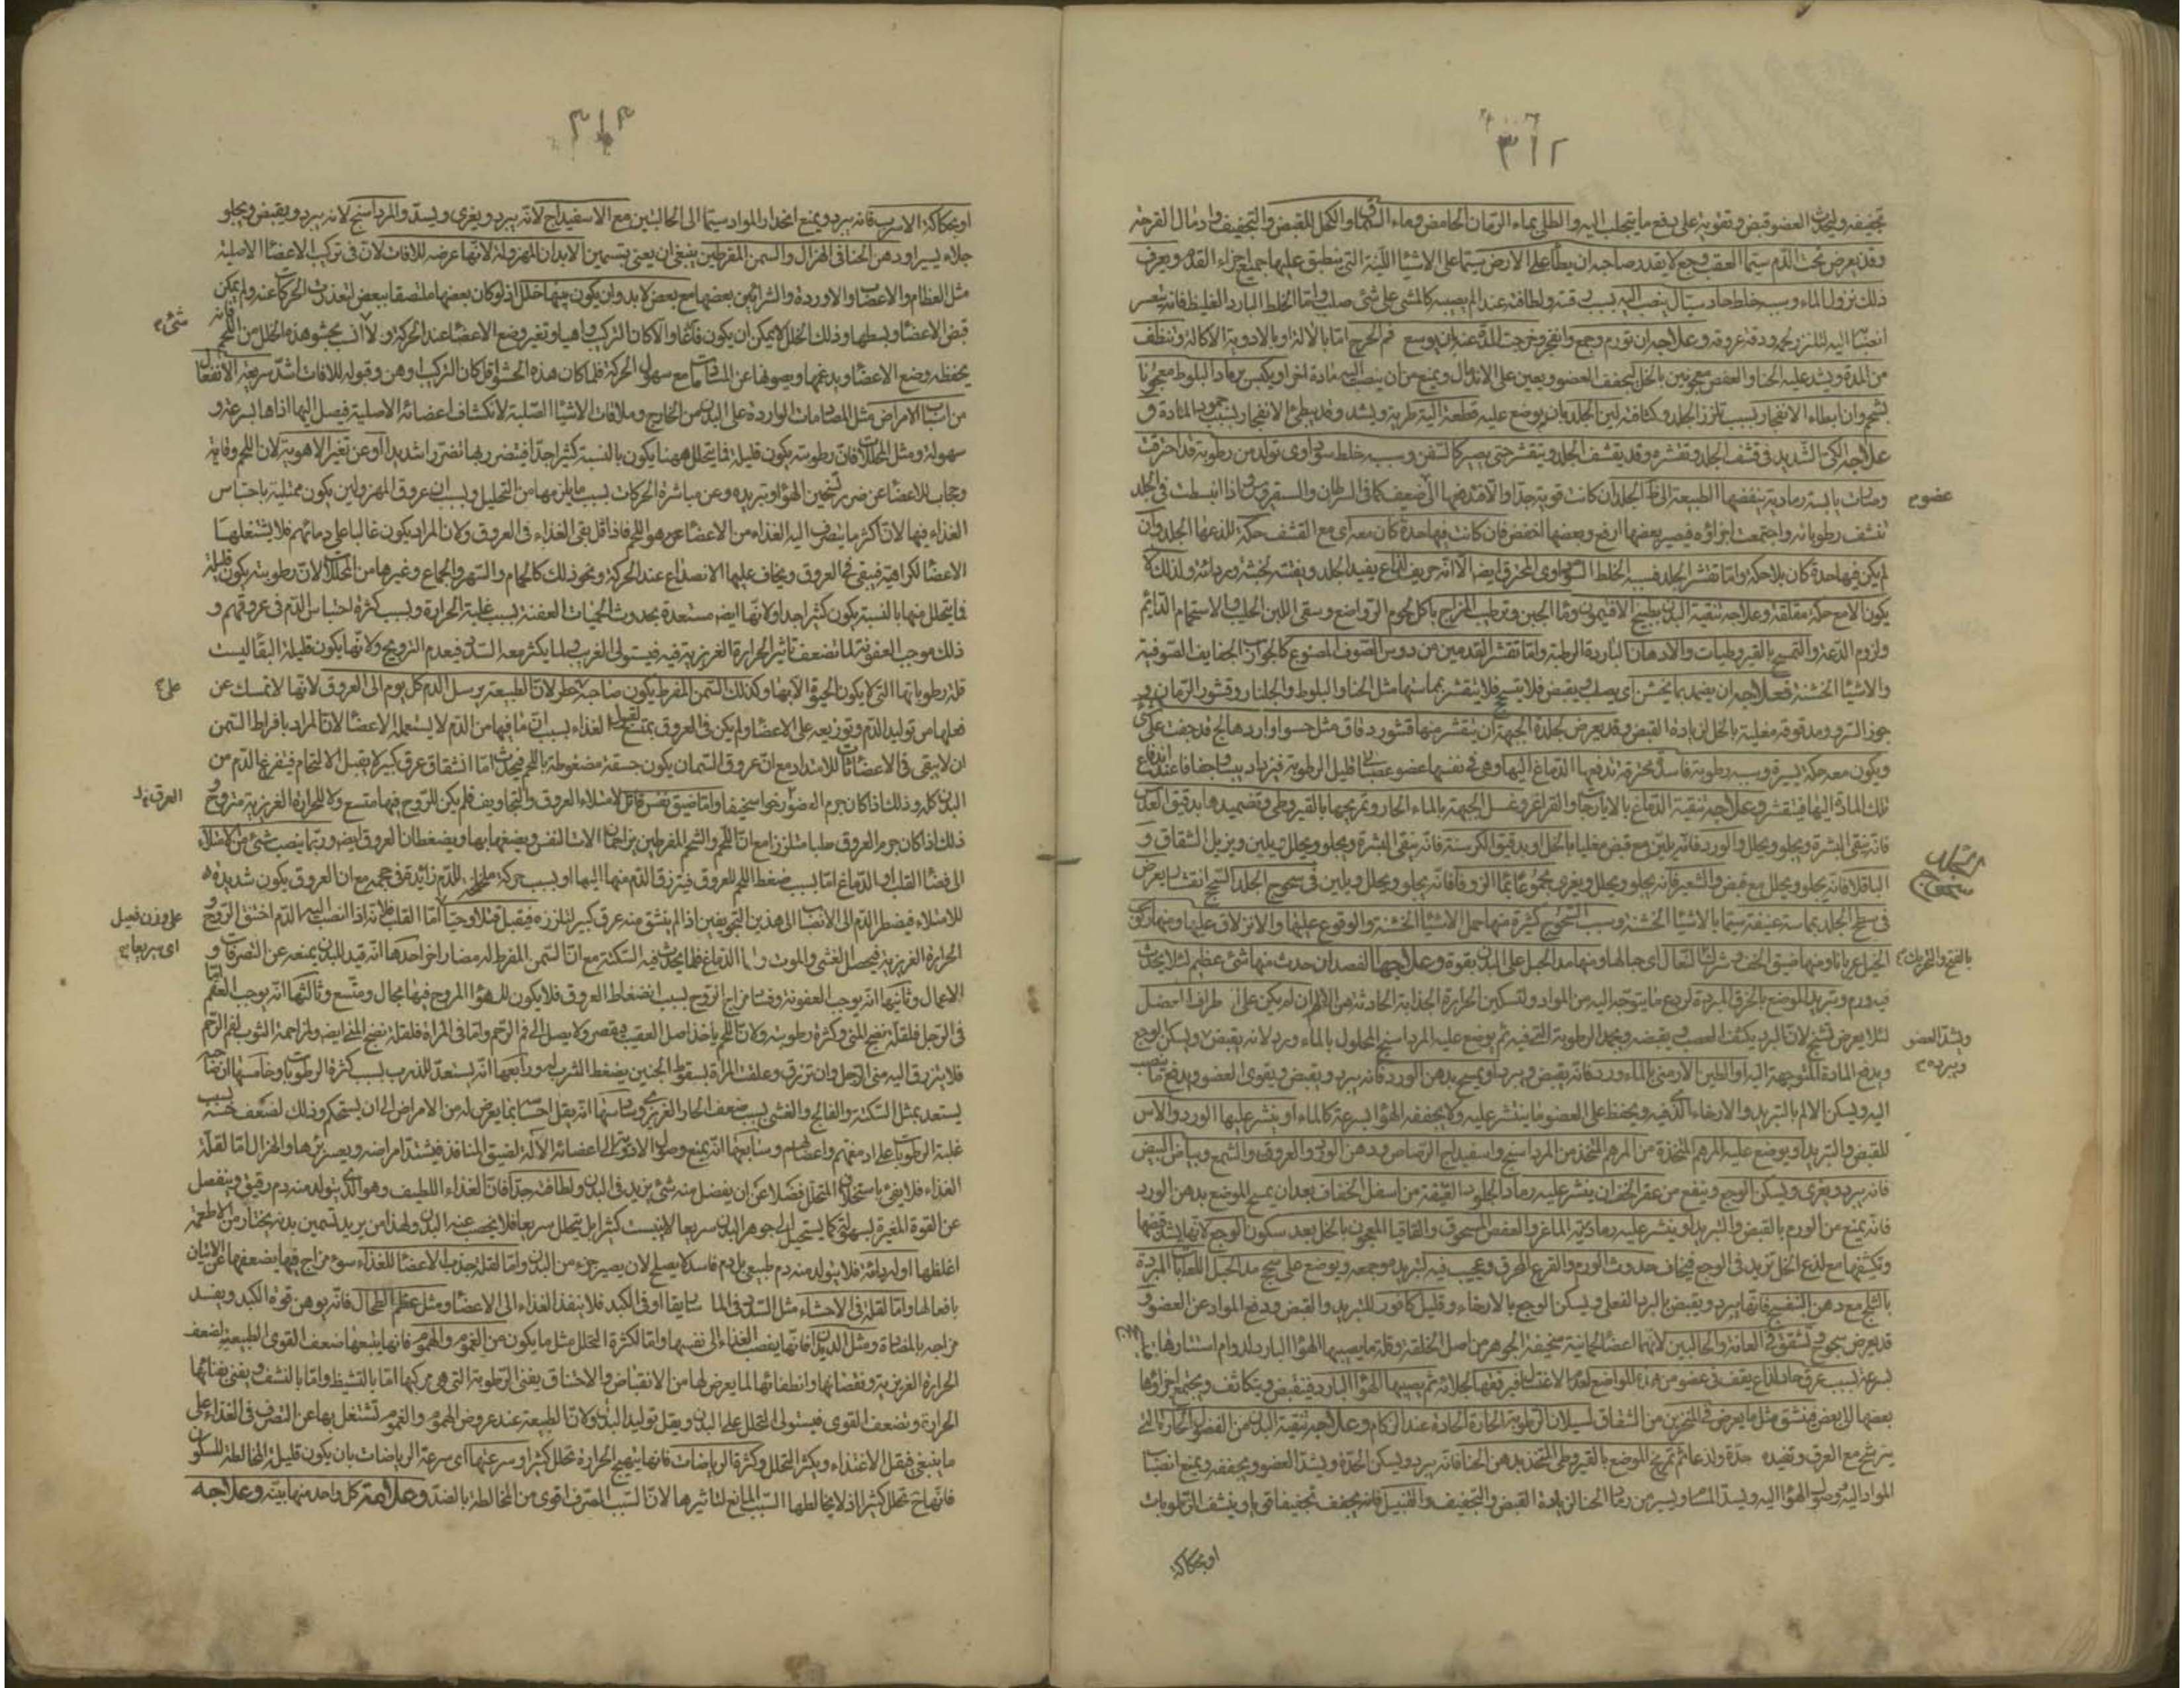 ٣١٢
تجفيفه وليحدث العضو قبض وتقوية على دفع ما يتجلب اليه والطلى بماء الرمان الحامض وماء السماق او الكحل للقبض والتجفيف وادمال القرحة
وقد يعرض تحت الدم سيما العقب وجع لا يقدر صاحبه ان يطأ على الارض سيما على الاشياء اللينة التى ينطبق عليها جميع اجزاء القدم ويعرف
ذلك نزول الماء وسببه خلط حاد سيال ينصب اليه بسبب رقته ولطافته عند الم يصيبه كالمشى على شئ صلب واما الخلط البارد الغليظ فانه يتعسر
انصبابه اليه لتلزز لحمه ودقة عروقه وعلاجه ان تورم وجمع وانفجر وخرجت المدة عنه ان يوسع فم الجرح اما بالآلة او بالادوية الاكالة وتنظف
من المدة ويشد عليه الحنا والعفص معجونين بالخل ليجفف العضو ويعين على الاندمال ويمنع من ان ينصب اليه مادة اخرى او يكبس برماد البلوط معجونا
بشحم وان ابطاء الانفجار بسبب تلزز الجلد وكثافته لين الجلد بان يوضع عليه قطعة الية طرية ويشد وقد يبطئ الانفجار بسبب جمود المادة و
علاجه الكى الشديد فى قشف الجلد وتقشره وقد يقشف الجلد ويتقشر حتى يصير كالسفن وسببه خلط سوداوى تولد من رطوبة قد احترقت
وصارت يابسة رمادية ينفضها الطبيعة الى ظاهر الجلد ان كانت قوية جدا والا فتدفعها الى عضو ضعيف كما فى السرطان والسقيروس فاذا انبسطت فى الجلد
تنشف رطوباته واجتمعت اجزاؤه فيصير بعضها ارفع وبعضها اخفض فان كانت فيها حدة كان معه اى مع القشف حكة للذعها الجلد وان
لم يكن فيها حدة كان بلا حكة واما تقشر الجلد فسببه الخلط السوداوى المحترق ايضا الا انه حريف لذاع يفيد الجلد ويفتته لخبثه وردائته ولذلك لا
يكون الا مع حكة مقلقة وعلاجه تنقية البدن بطبيخ الافتيمون وماء الجبن وترطيب المزاج باكل لحوم الرواضع وسقى اللبن الحليب والاستحمام الدائم
ولزوم الدعة والتمسيح بالقيروطيات والادهان الباردة الرطبة واما تقشر القدمين من دوس الصوف المصنوع كالجوارب الجفايف الصوفية
والاشياء الخشنة فعلاجه ان يضمد بما يخشن اى يصلب ويقبض فلا يتسحج فلا يتقشر بمماستها مثل الحنا والبلوط والجلنار وقشور الرمان و
جوز السرو مدقوقة مغلية بالخل لزيادة القبض وقد يعرض لجلدة الجبهة ان يتقشر منها قشور دقاق مثل حسو او اردهالج قد جفت على شئ
ويكون معه حكة يسيرة وسببه رطوبة فاسدة محترقة تدفعها الدماغ اليها وهى فى نفسها عضو عصبى قليل الرطوبة فيزداد يبسا وجفافا عند اندفاع
تلك المادة اليها فيتقشر وعلاجه تنقية الدماغ بالايارجات والغراغر وغسل الجبهة بالماء الحار وتمريخها بالقيروطى وتضميدها بدقيق العدس
فانه ينقى البشرة ويجلو ويحلل والورد فانه يلين مع قبض مغليا بالخل او بدقيق الكرسنة فانه ينقى البشرة ويجلو ويحلل ويلين ويزيل الشقاق و
الباقلا فانه يجلو ويحلل مع قبض والشعير فانه يجلو ويحلل ويغرى مجموعا بماء الزوفا فانه يجلو ويحلل ويلين فى سحوج الجلد السحج انقشار يعرض
فى سطح الجلد بمماسة عنيفة سيما بالاشياء الخشنة وسبب السحوج كثيرة منها حمل الاشياء الخشنة والوقوع عليها والانزلاق عليها ومنها ركوب
الخيل عريانا ومنها ضيق الخف وشراك النعال اى حبالها ومنها مد الحبل على البدن بقوة وعلاجها الفصد ان حدث منها شئ عظيم لئلا يحدث
فيه ورم وتبريد الموضع بالخرق المبردة لردع ما يتوجه اليه من المواد ولتسكين الحرارة الجذابة الحادثة من الالم ان لم يكن على طرف المفصل
لئلا يعرض تشنج لان البرد يكثف العصب ويقبضه ويجمد الرطوبة التى فيه ثم يوضع عليه المرداسنج المحلول بالماء ورد لانه يقبض ويسكن الوجع
ويدفع المادة المتوجهة اليه او الطين الارمنى بالماء ورد فانه يقبض ويبرد او يمسح بدهن الورد فانه يبرد ويقبض ويقوى العضو ويدفع ما ينصب
اليه ويسكن الالم بالتبريد والارخاء الذى فيه ويحفظ على العضو ما ينتثر عليه ولا يجففه الهواء بسرعة كالماء او ينثر عليها الورد والآس
للقبض والتبريد او يوضع عليه المرهم المتخذة من المرهم المتخذ من المرداسنج واسفيداج الرصاص ودهن الورد والعروق والشمع وبياض البيض
فانه يبرد ويغرى ويسكن الوجع وينفع من عقر الخف ان ينشر عليه رماد الجلود العتيقة من اسفل الخفاف بعد ان يمسح الموضع بدهن الورد
فانه يمنع من الورم بالقبض والتبريد او ينشر عليه رماد رية الماعز والعفص المسحوق والقاقيا المعجون بالخل بعد سكون الوجع لانها يشد قبضها
وتكثيفها مع لذع الخل تزيد فى الوجع فيخاف حدوث الورم والقرع المحرق وعجيب فيه لتبريد موجعه ويوضع على سحج مد الحبل اللعابات المبردة
بالثلج مع دهن البنفسج فانها يبرد ويقبض بالبرد الفعلى ويسكن الوجع بالارخاء وقليل كافور للتبريد والقبض ودفع المواد عن العضو و
قد يعرض سحوج وتشقق فى العانة والحالبين لانهما اعضاء لحمانية سخيفة الجوهر من اصل الخلقة وقلة ما يصيبها الهواء البارد لدوام استتارها
بسرعة بسبب عرق حاد لذاع يقف فى عضو من هذه المواضع لعدم الاغتسال فيرققها لجلائه ثم يصيبها الهواء البارد فينقبض ويتكاثف ويجتمع اجزاؤها
بعضها الى بعض فينشق مثل ما يعرض فى المنخرين من الشقاق لسيلان الرطوبة الحارة الحادة عند الزكام وعلاجه تنقية البدن من الفضول الحارة التى
يترشح مع العرق وتفيده حدة ولذعا ثم تمريخ الموضع بالقيروطى المتخذ بدهن الحنا فانه يبرد ويسكن الحدة ويشد العضو ويجففه ويمنع انصباب
المواد اليه ووصول الهواء اليه ويسد المسام ويسير من رماد الحنا لزيادة القبض والتجفيف والقنبيل فانه يجفف تجفيفا قويا وينشف الرطوبات
او بحكاكة
عضو م
السحاب سحوج
بالفتح والتحريك
ويشد العضو ويبرده م
٣١٣
او بحكاكة الاسرب فانه يبرد ويمنع انحدار المواد سيما الى الحالبين مع الاسفيداج لانه يبرد ويغرى ويسد والمرداسنج لانه يبرد ويقبض ويجلو
جلاء يسيرا ودهن الحنا فى الهزال والسمن المفرطين ينبغى ان يعنى بتسمين الابدان المهزولة لانها عرضة للافات لان فى تركيب الاعضاء الاصلية
مثل العظام والاعصاب والاوردة والشرائين بعضها مع بعض لا بد وان يكون بينها خلل اذ لو كان بعضها ملتصقا ببعض لتعذرت الحركات عنه ولم يمكن
قبض الاعضاء وبسطها وذلك الخلل لا يمكن ان يكون فارغا والا كان التركيب واهيا وتغير وضع الاعضاء عند الحركة ولا انسب بحشو هذه الخلل من اللحم فانه
يحفظ وضع الاعضاء ويدعمها ويصونها عن المصادمات مع سهولة الحركة فلما كان هذه الحشو اقل كان التركيب اوهن وقبوله للافات اشد سريعة الانفعال
من اسباب الامراض مثل المصادمات الواردة على البدن من الخارج وملاقات الاشياء الصلبة لانكشاف اعضائه الاصلية فيصل اليها اذاها بسرعة و
سهولة ومثل المحللات فان رطوبته يكون قليلة فما يتحلل ههنا يكون بالنسبة كثيرا جدا فيتضرر بها تضررا شديدا او عن تغير الاهوية لان اللحم وقاية
وحجاب للاعضاء عن ضرر تسخين الهواء وتبريده وعن مباشرة الحركات بسبب ما يلزمها من التحليل وبسبب ان عروق المهزولين يكون ممتلية باحتباس
الغذاء فيها لان اكثر ما ينصرف اليه الغذاء من الاعضاء هو اللحم فاذا قل بقى الغذاء فى العروق ولان المرار يكون غالبا على دمائهم فلا يشتغلها
الاعضاء لكراهية فيبقى فى العروق ويخاف عليها الانصداع عند الحركة ونحو ذلك كالحمام والسهر والجماع وغيرها من المحللات لان رطوبته يكون قليلة
فما يتحلل منها بالنسبة يكون كثيرا جدا ولانها ايضا مستعدة لحدوث الحميات العفنة بسبب غلبة الحرارة وبسبب كثرة احتباس الدم فى عروقهم و
ذلك موجب العفونة لما تضعف تاثير الحرارة الغريزية فيه فيستولى الغريب ولما يكثر معه السدد فيعدم الترويح ولانها يكون قليلة البقا لسبب
قلة رطوباتها التى لا يكون الحيوة الا بها وكذلك السمن المفرط يكون صاحبه على خطر لان الطبيعة يرسل الدم كل يوم الى العروق لانها لا تمسك عن
فعلها من توليد الدم وتوزيعه على الاعضاء ولم يكن فى العروق متسع لقبول الغذاء بسبب ان ما فيها من الدم لا يستعمله الاعضاء لان المراد بافراط السمن
ان لا يبقى فى الاعضاء تاب للامتداد مع ان عروق السمان يكون ضيقة مضغوطة باللحم فيحدث اما انشقاق عرق كبير لا يقبل الالتحام فيتفرغ الدم من
البدن كله وذلك اذا كان جرم العضو رخوا سخيفا واما ضيق نفس قاتل لامتلاء العروق والتجاويف فلم يكن للروح فيها متسع ولا للحرارة الغريزية متروح و
ذلك اذا كان جرم العروق صلبا متلززا مع ان اللحم والشحم المفرطين يزاحمان الات النفس ويضغطانها ويضغطان العروق ايضا وربما ينصب شئ من الامتلاء
الى فضاء القلب او الدماغ اما بسبب ضغط اللحم للعروق فيترزق الدم منها اليها او بسبب حركة للدم زائدة فى حجمه مع ان العروق يكون شديدة
للامتلاء فيضطر الدم الى الانصباب الى هذين التجويفين اذا لم ينشق منه عرق كبير لتلززه فيقتل قتلا وحيا اما القلب فلانه اذا انصب اليه الدم اختنق الروح و
الحرارة الغريزية فيحصل الغشى والموت واما الدماغ فلما يحدث فيه السكتة مع ان السمن المفرط له مضار اخر احدها انه قيد للبدن يمنعه عن التصرفات و
الاعمال وثانيها انه يوجب العفونة وفساد مزاج الروح بسبب انضغاط العروق فلا يكون للهواء المروح فيها مجال ومتسع وثالثها انه يوجب العقم اما
فى الرجل فلقلة نضج المنى وكثرة رطوبته ولان اللحم ياخذ اصل القضيب فيقصر ولا يصل الى فم الرحم واما فى المراة فلقلة نضج المنى ايضا ولمزاحمة الثرب لفم الرحم
فلا ينزرق اليه منى الرجل وان تزرق وعلقت المراة يسقط الجنين بضغط الثرب له ورابعها انه يستعد للذرب بسبب كثرة الرطوبات وخامسها ان صاحبه
يستعد بمثل السكتة والفالج والغشى بسبب ضعف الحار الغريزى وسادسها انه يقل احساسه بما يعرض له من الامراض الى ان يستحكم وذلك لضعف حسه بسبب
غلبة الرطوبات على ادمغتهم واعصابهم وسابعها انه يمنع وصول الادوية الى اعضائه الآلة لضيق المنافذ فيشتد امراضه ويعسر برؤها والهزال اما لقلة
الغذاء فلا يفى باستخلاف المتحلل فضلا عن ان يفضل منه شئ يزيد فى البدن ولطافته جدا فان الغذاء اللطيف وهو الذى يتولد منه دم رقيق وينفصل
عن القوة المغيرة بسهولة كما يستحيل الى جوهر البدن سريعا لا يثبت كثيرا بل يتحلل سريعا فلا يخصب عنه البدن ولهذا من يريد تسمين بدنه يختار من الاطعمة
اغلظها او لردائته فلا يتولد منه دم طبيعى بل دم فاسد لا يصلح لان يصير جزء من البدن واما لقلة جذب الاعضاء للغذاء لسوء مزاج فيها يضعفها عن الاتيان
بافعالها واما لقلة فى الاحشاء مثل السدد فى الماساريقا او فى الكبد فلا ينفذ الغذاء الى الاعضاء ومثل عظم الطحال فانه يوهن قوة الكبد ويفسد
مزاجه بالمضادة ومثل الديدان فانها يغصب الغذاء الى نفسها واما لكثرة التحلل مثل ما يكون من الغموم والهموم فانها يتبعها ضعف القوى الطبيعية لضعف
الحرارة الغريزية ونقصانها وانطفائها لما يعرض لها من الانقباض والاختناق بفنى الرطوبة التى هى مركبها اما بالتنشيط واما بالنشف ويفنى بفنائها
الحرارة وتضعف القوى فيستولى التحلل على البدن ويقل توليد البدل ولان الطبيعة عند عروض الهموم والغموم تشتغل بها عن التصرف فى الغذاء على
ما ينبغى فيقل الاغتذاء ويكثر التحلل وكثرة الرياضات فانها يهيج الحرارة تحلل كثيرا وسرعتها اى سرعة الرياضات بان يكون قليلة المخالطة للسكون
فانها ح تحلل كثيرا اذ لا يخالطها السبب المانع لتاثيرها لان السبب الصرف اقوى من المخالطة بالضد وعلامة كل واحد منها بينة وعلاجه
شئ م
على م
العرق يد
على وزن فعيل اى سريعا م